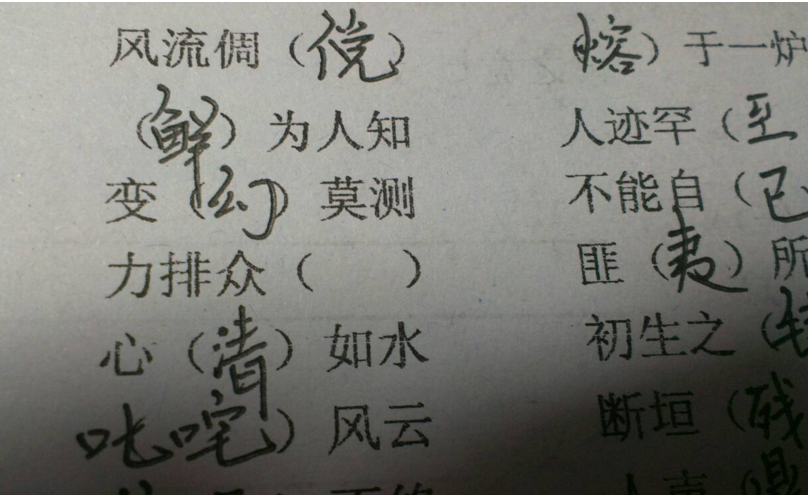 风流倜（傥） （熔）于一炉
（鲜）为人知 人迹罕（至
变（幻）莫测 不能自（已
力排众（ ） 匪（夷）所
心（清）如水 初生之（
叱咤）风云 断垣（残
人声（鼎